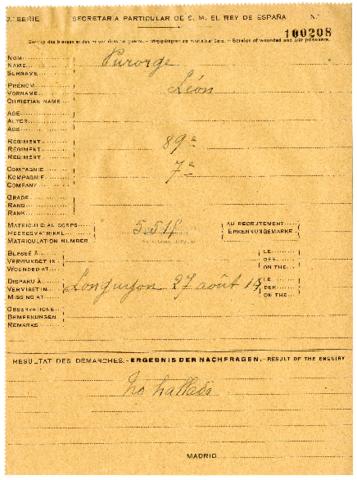 2.ª SERIE SECRETARIA PARTICULAR DE S. M. EL REY DE ESPAÑA N.º
100208
NOM
NAME
SURNAME
Purorge
PRÉNOM
VORNAME
CHRISTIAN NAME
Léon
AGE
ALTER
AGE
RÉGIMENT
REGIMENT
REGIMENT
89e
COMPAGNIE
KOMPAGNIE
COMPANY
7e
GRADE
RANG
RANK
MATRICULE AU CORPS
HEERESMATRIKEL
MATRICULATION NUMBER
5.514
AU RECRUTEMENT
ERKENNUNGSMARKE
BLESSÉ À
VERWUNDET IN
WOUNDED AT
LE
DEN
ON THE
DISPARU À
VERMISST IN
MISSING AT
Longuyon 27 août 14
LE
DEN
ON THE
OBSERVATIONS
BEMERKUNGEN
REMARKS
RÉSULTAT DES DÉMARCHES.-ERGEBNIS DER NACHFRAGEN.-RESULT OF THE ENQUIRY
No hallado
MADRID